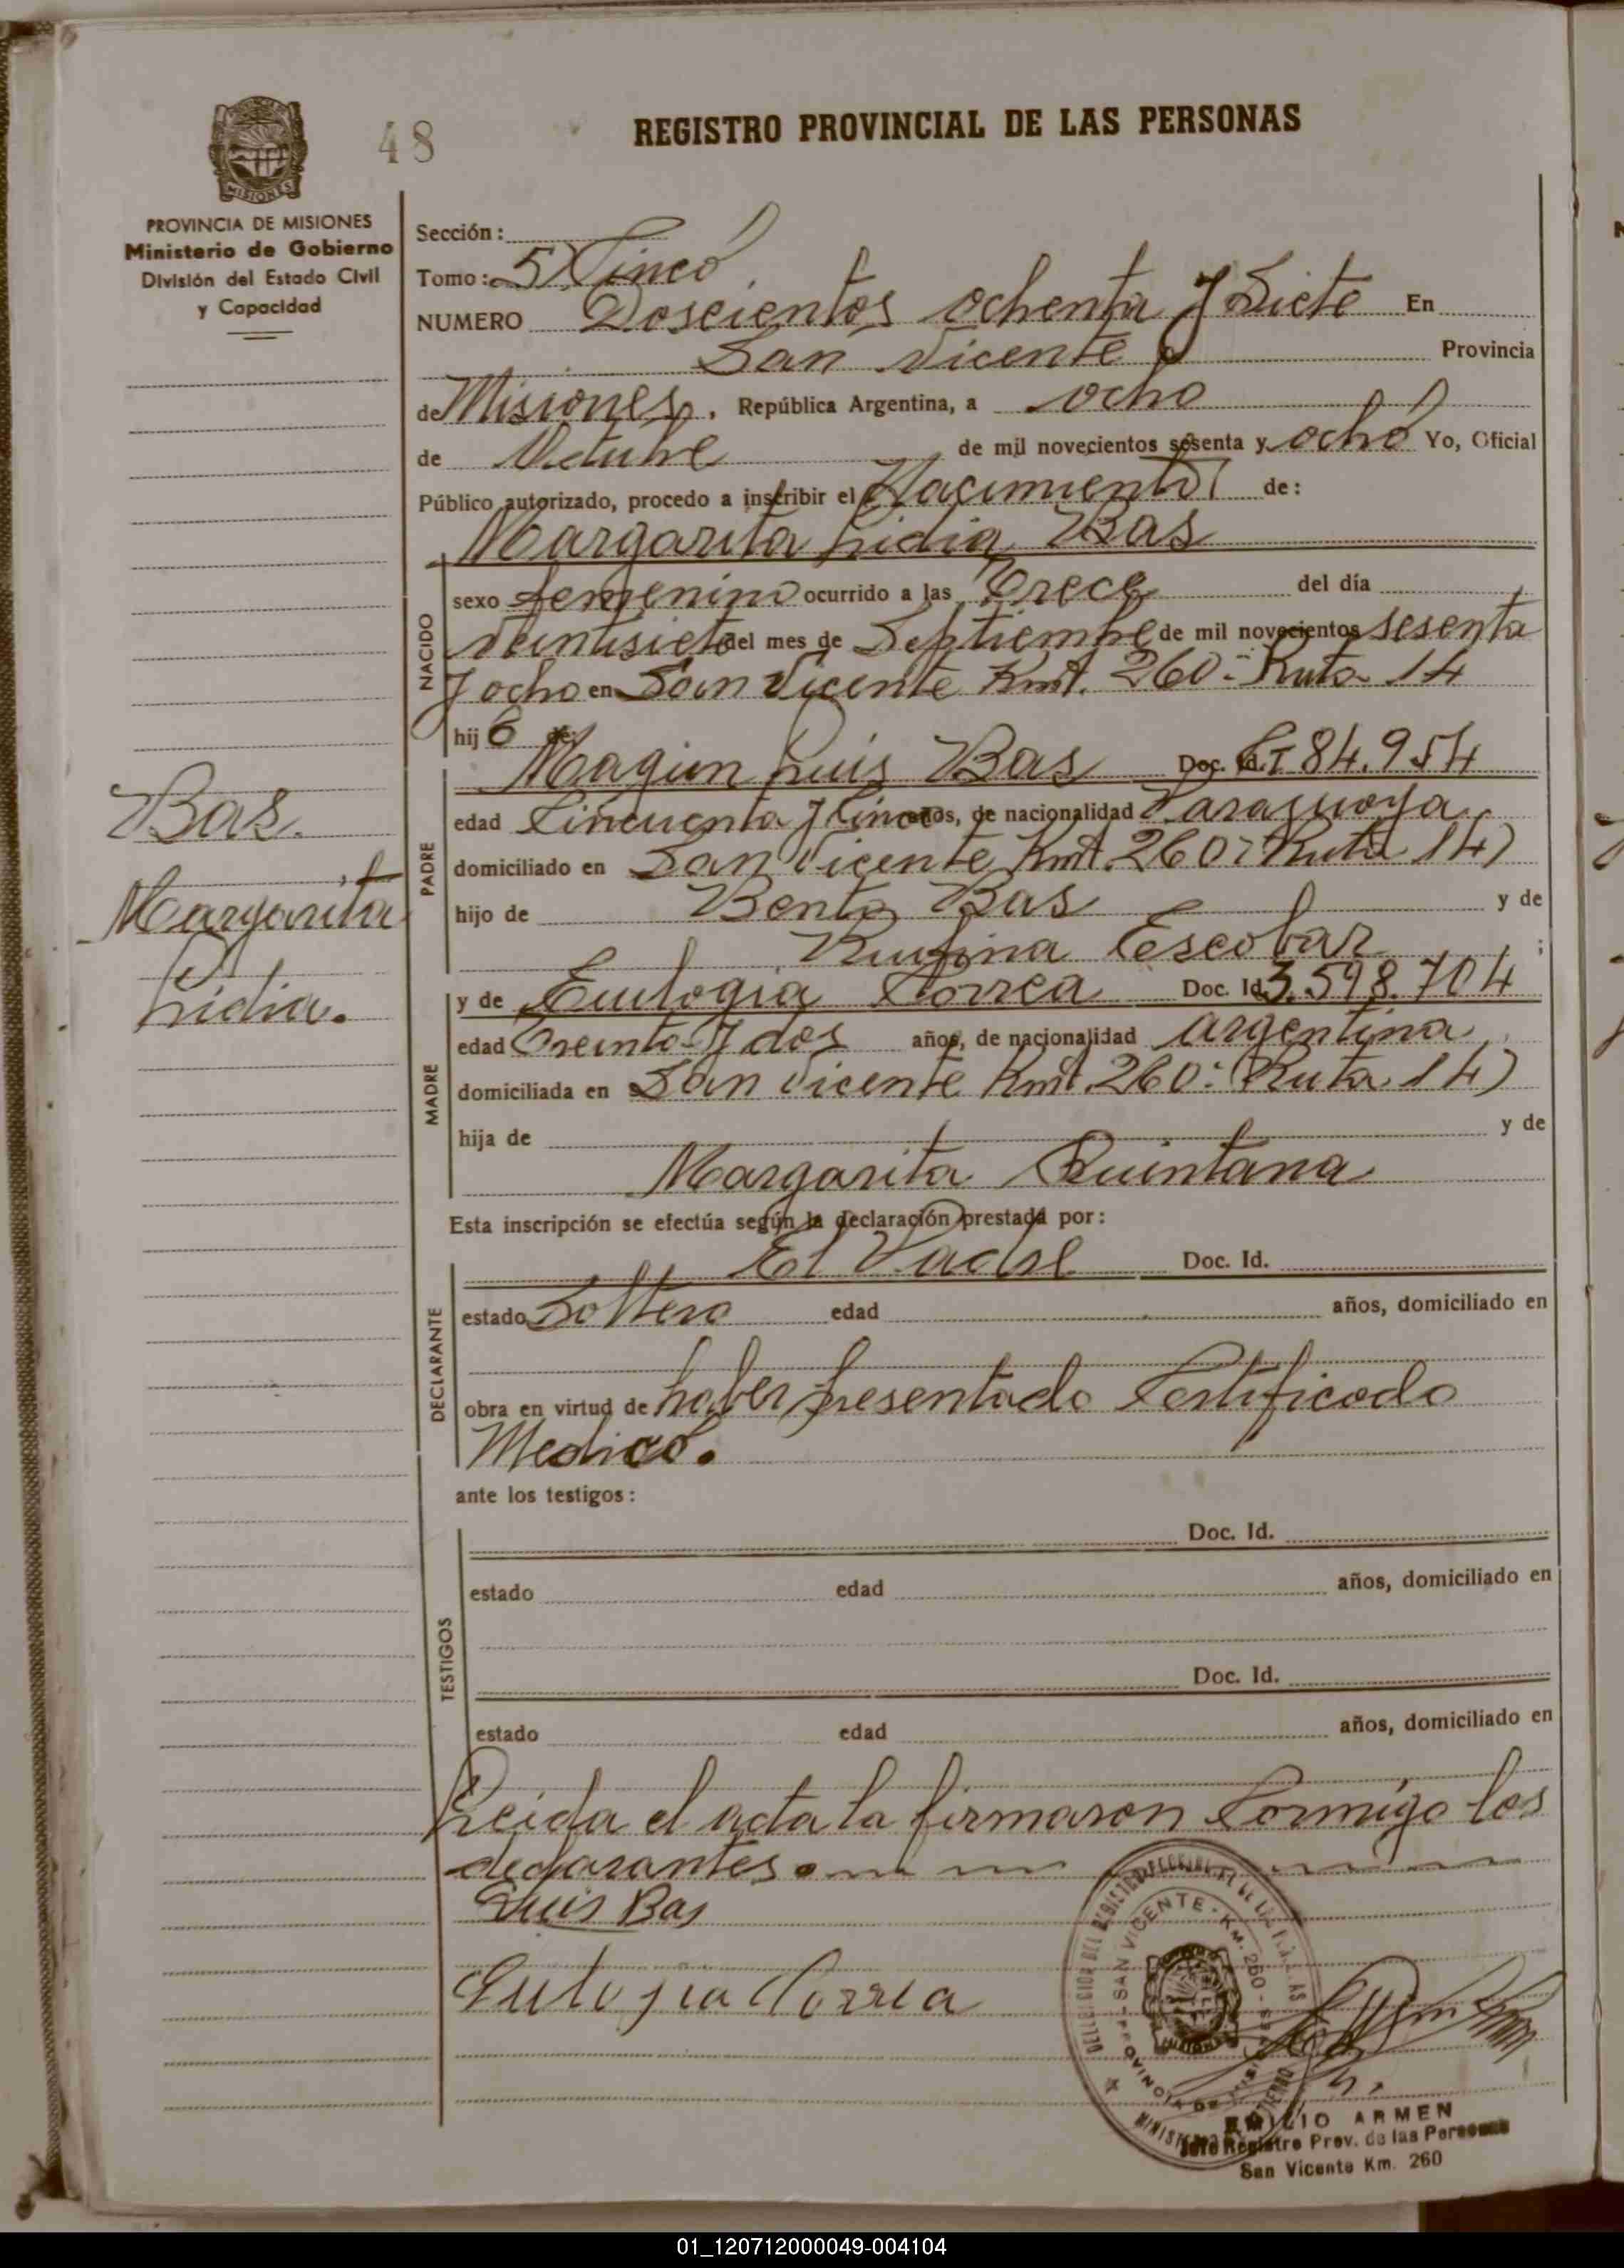 48
REGISTRO PROVINCIAL DE LAS PERSONAS
MISIONES
PROVINCIA DE MISIONES
Ministerio de Gobierno
División del Estado Civil
y Capacidad
Sección:
Tomo: 5) Cinco
NUMERO Doscientos ochenta y Siete En
San Vicente Provincia
de Misiones, República Argentina, a ocho
de Octubre de mil novecientos sesenta y ocho Yo, Oficial
Público autorizado, procedo a inscribir el Nacimiento de:
Margarita Lidia Bas
NACIDO
sexo femenino ocurrido a las Trece del día
Veintisiete del mes de Septiembre de mil novecientos sesenta
y ocho en San Vicente Kmt. 260- Ruta 14
hij de:
PADRE
Magin Luis Bas Doc. Id. 84.954
edad Cincuenta y Cinco años, de nacionalidad Paraguaya
domiciliado en San Vicente Kmt. 260- Ruta 14)
hijo de Bento Bas y de
Rufina Escobar ;
MADRE
y de Eulogia Correa Doc. Id. 3.598.704
edad Treinta y dos años, de nacionalidad argentina
domiciliada en San Vicente Kmt. 260- Ruta 14)
hija de y de
Margarita Quintana
Bas.
Margarita
Lidia.
Esta inscripción se efectúa según la declaración prestada por:
DECLARANTE
El Padre Doc. Id.
estado Soltero edad años, domiciliado en
obra en virtud de haber presentado Certificado
Medico.
ante los testigos:
TESTIGOS
Doc. Id.
estado edad años, domiciliado en
Doc. Id.
estado edad años, domiciliado en
Leida el acta la firmaron Conmigo los
declarantes.
Luis Bas
Eulogia Correa
SAN VICENTE - KM. 260 -
PROVINCIA DE
EMILIO ARMEN
Jefe Registro Prov. de las Personas
San Vicente Km. 260
01_120712000049-004104